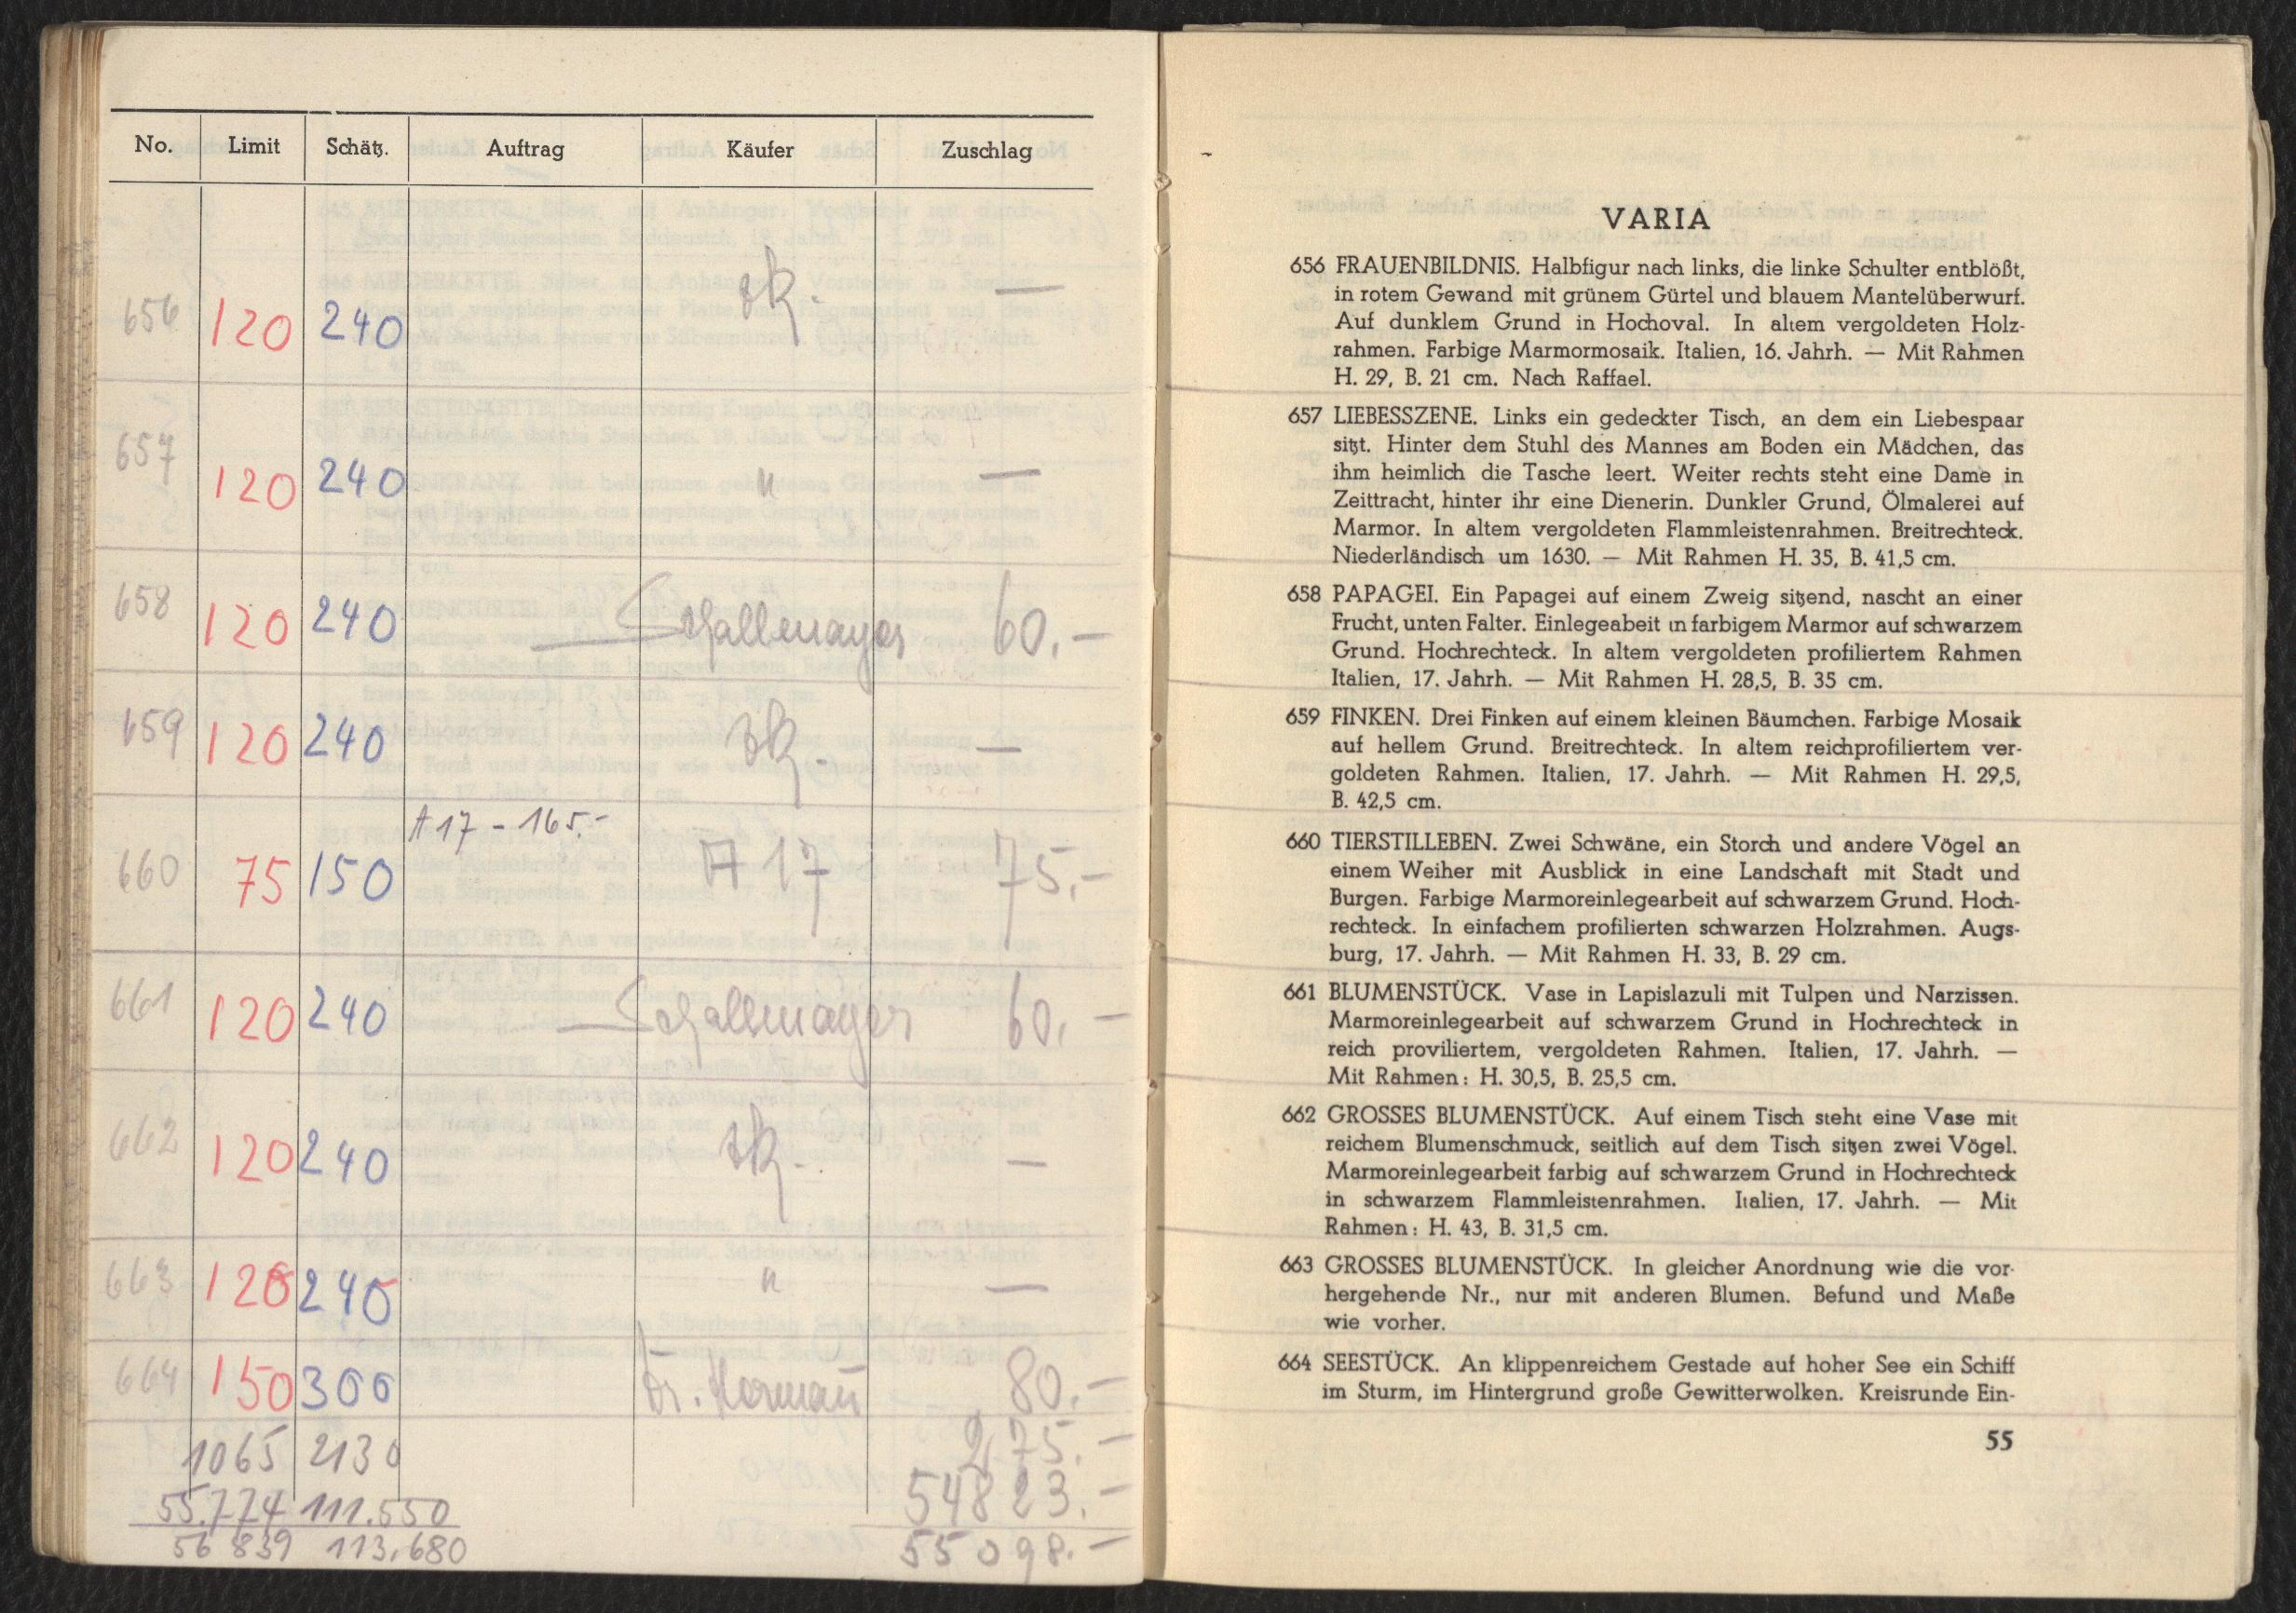 No. Limit Schätz. Auftrag Käufer Zuschlag
656 120 240 zk. —
657 120 240 " —
658 120 240 — Schallmayer 60.—
659 120 240 zk. —
A 17 - 165.-
660 75 150 A 17 75.—
661 120 240 — Schallmayer 60.—
662 120 240 zk. —
663 120 240 " —
664 150 300 Dr. 80.—
1065 2130 275.—
55.774 111.550 54823.—
56 839 113.680 55098.—
VARIA
656 FRAUENBILDNIS. Halbfigur nach links, die linke Schulter entblößt,
in rotem Gewand mit grünem Gürtel und blauem Mantelüberwurf.
Auf dunklem Grund in Hochoval. In altem vergoldeten Holz-
rahmen. Farbige Marmormosaik. Italien, 16. Jahrh. — Mit Rahmen
H. 29, B. 21 cm. Nach Raffael.
657 LIEBESSZENE. Links ein gedeckter Tisch, an dem ein Liebespaar
sitzt. Hinter dem Stuhl des Mannes am Boden ein Mädchen, das
ihm heimlich die Tasche leert. Weiter rechts steht eine Dame in
Zeittracht, hinter ihr eine Dienerin. Dunkler Grund, Ölmalerei auf
Marmor. In altem vergoldeten Flammleistenrahmen. Breitrechteck.
Niederländisch um 1630. — Mit Rahmen H. 35, B. 41,5 cm.
658 PAPAGEI. Ein Papagei auf einem Zweig sitzend, nascht an einer
Frucht, unten Falter. Einlegeabeit in farbigem Marmor auf schwarzem
Grund. Hochrechteck. In altem vergoldeten profiliertem Rahmen
Italien, 17. Jahrh. — Mit Rahmen H. 28,5, B. 35 cm.
659 FINKEN. Drei Finken auf einem kleinen Bäumchen. Farbige Mosaik
auf hellem Grund. Breitrechteck. In altem reichprofiliertem ver-
goldeten Rahmen. Italien, 17. Jahrh. — Mit Rahmen H. 29,5,
B. 42,5 cm.
660 TIERSTILLEBEN. Zwei Schwäne, ein Storch und andere Vögel an
einem Weiher mit Ausblick in eine Landschaft mit Stadt und
Burgen. Farbige Marmoreinlegearbeit auf schwarzem Grund. Hoch-
rechteck. In einfachem profilierten schwarzen Holzrahmen. Augs-
burg, 17. Jahrh. — Mit Rahmen H. 33, B. 29 cm.
661 BLUMENSTÜCK. Vase in Lapislazuli mit Tulpen und Narzissen.
Marmoreinlegearbeit auf schwarzem Grund in Hochrechteck in
reich proviliertem, vergoldeten Rahmen. Italien, 17. Jahrh. —
Mit Rahmen: H. 30,5, B. 25,5 cm.
662 GROSSES BLUMENSTÜCK. Auf einem Tisch steht eine Vase mit
reichem Blumenschmuck, seitlich auf dem Tisch sitzen zwei Vögel.
Marmoreinlegearbeit farbig auf schwarzem Grund in Hochrechteck
in schwarzem Flammleistenrahmen. Italien, 17. Jahrh. — Mit
Rahmen: H. 43, B. 31,5 cm.
663 GROSSES BLUMENSTÜCK. In gleicher Anordnung wie die vor-
hergehende Nr., nur mit anderen Blumen. Befund und Maße
wie vorher.
664 SEESTÜCK. An klippenreichem Gestade auf hoher See ein Schiff
im Sturm, im Hintergrund große Gewitterwolken. Kreisrunde Ein-
55